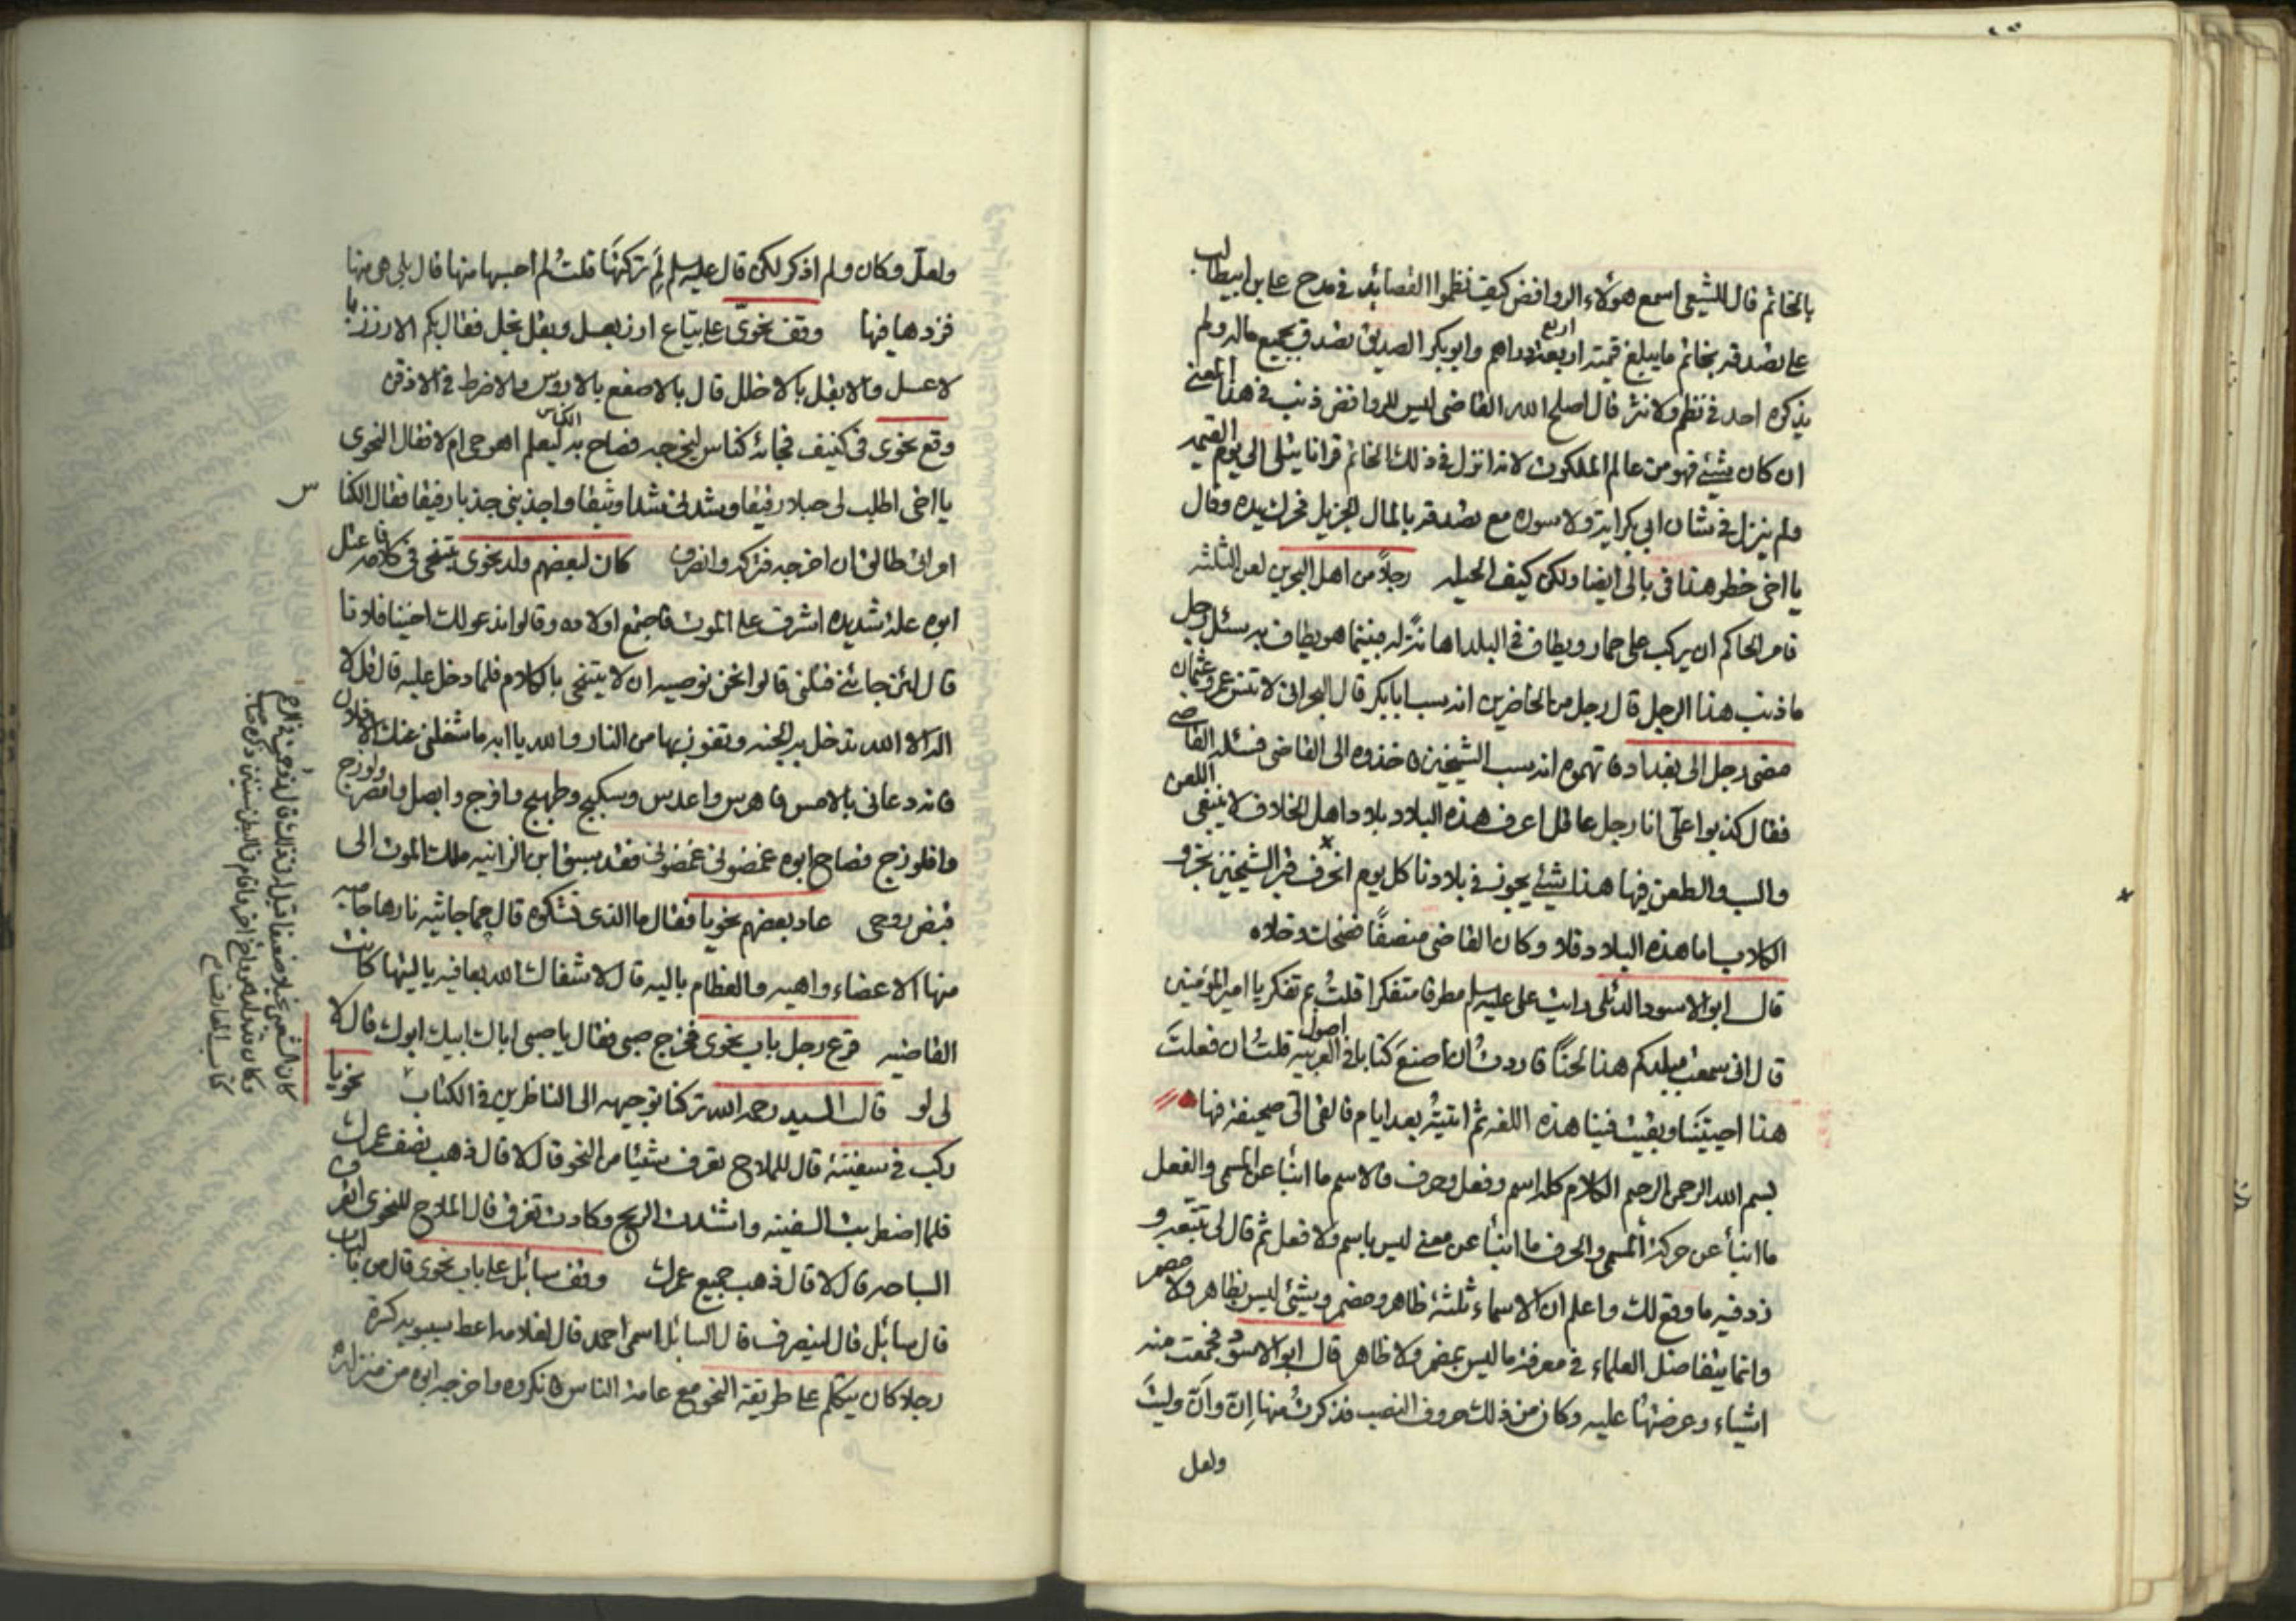 بالخاتم قال للشيعى اسمع هؤلاء الروافض كيف نظموا القصائد فى مدح على بن ابيطالب
على تصدقه بخاتم ما يبلغ قيمته اربعة دراهم وابو بكر الصديق تصدق بجميع ماله ولم
يذكره احد فى نظم ولا نثر قال اصلح الله القاضى ليس للروافض ذنب فى هذا المعنى
ان كان شيئ فهو من عالم الملكوت لانه انزل فى ذلك الخاتم قرانا يتلى الى يوم القيمه
ولم ينزل فى شان ابى بكر اية ولا سوره مع تصدقه بالمال الجزيل فحرك يده وقال
يا اخى خطر هذا فى بالى ايضا ولكن كيف الحيله رجلاً من اهل البحرين لعن الثلثه
فامر الحاكم ان يركب على حمار ويطاف فى البلد اهانةً له فبينما هو يطاف به سئل رجل
ما ذنب هذا الرجل قال رجل من الحاضرين انه سب ابا بكر قال البحرانى لا تنس عمر وعثمان
مضى رجل الى بغداد فاتهموه انه يسب الشيخين فاخذوه الى القاضى فسئله القاضى
فقال كذبوا علىّ انا رجل عاقل اعرف هذه البلاد بلاد اهل الخلاف لا ينبغى اللعن
والسب والطعن فيها هذا شيئ يجوز فى بلادنا كل يوم انحرف قبر الشيخين بخرو
الكلاب اما هذه البلاد فلا وكان القاضى منصفًا فضحك وخلاه
قال ابو الاسود الدئلى رايت على عليه سلم مطرقا متفكرا قلتُ بم تفكر يا امير المؤمنين
قال انى سمعت ببلدكم هذا لحنًا فاردتُ ان اصنعَ كتابا فى اصول العربية قلتُ ان فعلتَ
هذا احييتَنا وبقيت فينا هذه اللغه ثم اتيتُه بعد ايام فالقى الىّ صحيفة فيها
بسم الله الرحمن الرحيم الكلام كله اسم وفعل وحرف فالاسم ما انبأ عن المسمى والفعل
ما انبأ عن حركة المسمى والحرف ما انبأ عن معنى ليس باسم ولا فعل ثم قال لى تتبعه و
زد فيه ما وقع لك واعلم ان الاسماء ثلثة ظاهر ومضمر وشيئ ليس بظاهر ولا مضمر
وانما يتفاضل العلماء فى معرفة ما ليس بمضمر ولا ظاهر قال ابو الاسود فجمعت منه
اشياء وعرضتها عليه وكان من ذلك حروف النصب فذكرتُ منها اِنّ واَنّ وليتَ
ولعل
ولعلّ وكان ولم اذكر لكن قال عليه سلم لِمَ تركتَها قلتُ لم احسبها منها قال بلى هى منها
فزدها فيها وقف نحوىّ على بياع ارز بعسل وبقل بخل فقال بكم الارزز با
لاعسل والابقل بالاخلل قال بالاصفع بالاروس والاضرط فى الاذقن
وقع نحوى فى كنيف فجائه كناس ليخرجه فصاح به الكناس ليعلم اهو حى ام لا فقال النحوى
يا اخى اطلب لى حبلا دقيقا وشدنى شدا وثيقا واجذبنى جذبا رفيقا فقال الكنا
س
امراتى طالق ان اخرجه فتركه وانصرف كان لبعضهم ولد نحوى يتنحى فى كلامه فاعتل
ابوه علة شديده اشرف على الموت فاجتمع اولاده وقالوا ندعو لك اخينا فلانا
قال لئن جائنى قتلنى قالوا نحن نوصيه ان لا يتنحى بالكلام فلما دخل عليه قال قل لا
اله الا الله تدخل بها الجنه وتفوز بها من النار والله يا ابه ما شغلنى عنك الا فلان
فانه دعانى بالامس فاهرس واعدس وسكبج وطهبج وافرج وابصل وامضر ولوزج
وافلوذج فصاح ابوه غمضونى غمضونى فقد سبق ابن الزانيه ملك الموت الى
قبض روحى عاد بعضهم نحويا فقال ما الذى تشكوه قال حما جاثيه نارها حاميه
منها الاعضاء واهيه والعظام باليه قال لا شفاك الله بعافيه يا ليتها كانت
القاضيه قرع رجل باب نحوى فخرج صبى فقال يا صبى اباك ابيك ابوك قال لا
لى لو قال السيد رحمه الله تركنا توجيهه الى الناظرين فى الكتاب نحويا
ركب فى سفينة قال للملاح تعرف شيئا من النحو قال لا قال ذهب نصف عمرك
فلما اضطربت السفينه واشتدت الريح وكادت تغرق قال الملاح للنحوى اتعرف
السباحه قال لا قال ذهب جميع عمرك وقف سائل على باب نحوى قال من بالباب
قال سائل قال لينصرف قال السائل اسمى احمد قال لغلامه اعط سيبويه كسرة
رجلا كان يتكلم على طريقة النحو مع عامة الناس فانكروه واخرجه ابوه من منزله